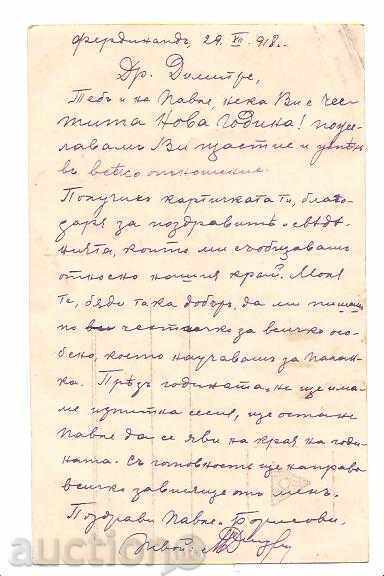 Фердинандъ, 29. XII. 918 г.
Др. Димитре,
Тебъ и на Павле, нека Ви е чес-
тита Нова Година! поже-
лавамъ Ви щастие и успѣхъ
въ всѣко отношение.
Получихъ картичката ти, благо-
даря за поздравитѣ и свѣдѣ-
нията, които ми съобщавашъ
относно нашия край. Моля
те, бѫди така добъръ, да ми пишешъ
по честичко за всичко осо-
бено, което научавашъ за Палан-
ка. Прѣзъ годината, не ще има-
ме изпитна сесия, ще остане
Павле да се яви на края на годи-
ната. Съ готовность ще направя
всичко зависяще отъ менъ.
Поздрави Павле и Борисови.
Твой
auction